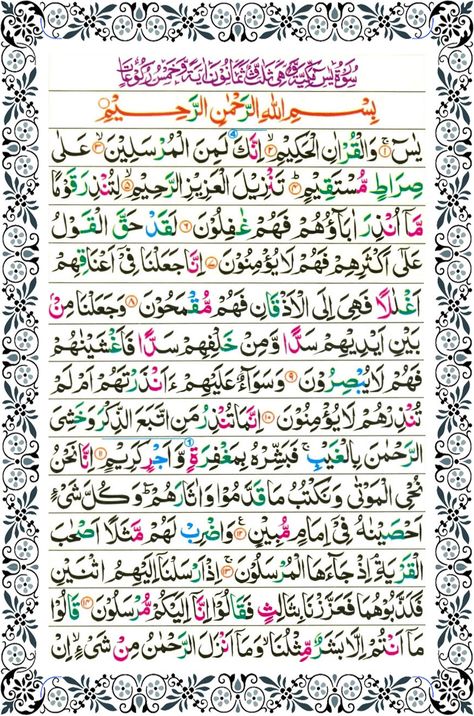 سُوْرَةُ يٰسٓ مَكِّيَّةٌ وَّهِيَ ثَلٰثٌ وَّثَمَانُوْنَ اٰيَةً وَّخَمْسُ رُكُوْعَاتٍ
بِسْمِ اللهِ الرَّحْمٰنِ الرَّحِيْمِ
يٰسٓ ۚ﴿۱﴾ وَالْقُرْاٰنِ الْحَكِيْمِ ۙ﴿۲﴾ اِنَّكَ لَمِنَ الْمُرْسَلِيْنَ ۙ﴿۳﴾ عَلٰى
صِرَاطٍ مُّسْتَقِيْمٍ ؕ﴿۴﴾ تَنْزِيْلَ الْعَزِيْزِ الرَّحِيْمِ ۙ﴿۵﴾ لِتُنْذِرَ قَوْمًا
مَّاۤ اُنْذِرَ اٰبَآؤُهُمْ فَهُمْ غٰفِلُوْنَ ﴿۶﴾ لَقَدْ حَقَّ الْقَوْلُ
عَلٰٓى اَكْثَرِهِمْ فَهُمْ لَا يُؤْمِنُوْنَ ﴿۷﴾ اِنَّا جَعَلْنَا فِيْۤ اَعْنَاقِهِمْ
اَغْلٰلًا فَهِيَ اِلَى الْاَذْقَانِ فَهُمْ مُّقْمَحُوْنَ ﴿۸﴾ وَجَعَلْنَا مِنْۢ
بَيْنِ اَيْدِيْهِمْ سَدًّا وَّمِنْ خَلْفِهِمْ سَدًّا فَاَغْشَيْنٰهُمْ
فَهُمْ لَا يُبْصِرُوْنَ ﴿۹﴾ وَسَوَآءٌ عَلَيْهِمْ ءَاَنْذَرْتَهُمْ اَمْ لَمْ
تُنْذِرْهُمْ لَا يُؤْمِنُوْنَ ﴿۱۰﴾ اِنَّمَا تُنْذِرُ مَنِ اتَّبَعَ الذِّكْرَ وَخَشِيَ
الرَّحْمٰنَ بِالْغَيْبِ ۚ فَبَشِّرْهُ بِمَغْفِرَةٍ وَّاَجْرٍ كَرِيْمٍ ﴿۱۱﴾ اِنَّا نَحْنُ
نُحْيِ الْمَوْتٰى وَنَكْتُبُ مَا قَدَّمُوْا وَاٰثَارَهُمْ ؕ وَكُلَّ شَيْءٍ
اَحْصَيْنٰهُ فِيْۤ اِمَامٍ مُّبِيْنٍ ﴿۱۲﴾ وَاضْرِبْ لَهُمْ مَّثَلًا اَصْحٰبَ
الْقَرْيَةِ ۘ اِذْ جَآءَهَا الْمُرْسَلُوْنَ ۚ﴿۱۳﴾ اِذْ اَرْسَلْنَاۤ اِلَيْهِمُ اثْنَيْنِ
فَكَذَّبُوْهُمَا فَعَزَّزْنَا بِثَالِثٍ فَقَالُوْۤا اِنَّاۤ اِلَيْكُمْ مُّرْسَلُوْنَ ﴿۱۴﴾ قَالُوْا
مَاۤ اَنْتُمْ اِلَّا بَشَرٌ مِّثْلُنَا ۙ وَمَاۤ اَنْزَلَ الرَّحْمٰنُ مِنْ شَيْءٍ ۙ اِنْ